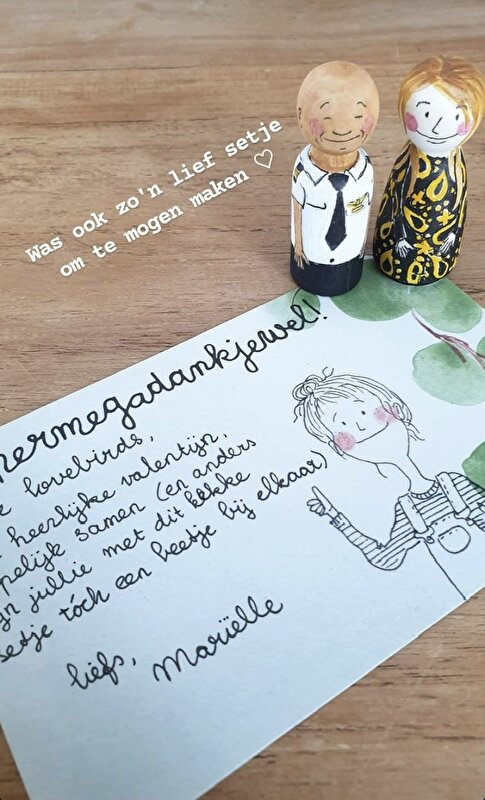 Was ook zo'n lief setje
om te mogen maken ♡
ermegadankjewel!
lovebirds,
heerlijke valentijn,
pelijk samen (en anders
jn jullie met dit
setje tóch een beetje bij elkaar)
liefs,
Mariëlle